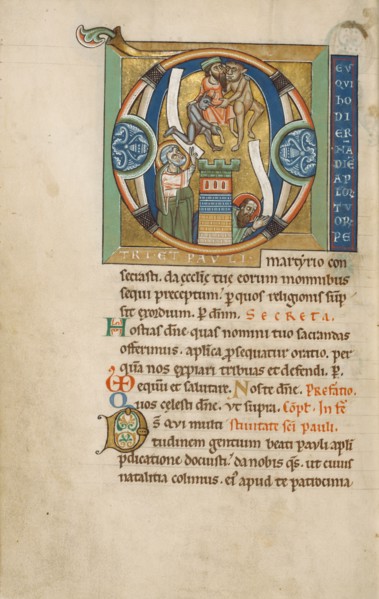 D EV
S QVI
HO
DI
ER
NĀ
DIĒ
AP
LOR
TV
OR
PE
TRI ET PAVLI.
martyrio con
secrasti. da ęcclię tuę eorum in omnibus
sequi preceptum. p quos religionis sūp
sit exordium. P dnm. SECRETA.
Hostias dne quas nomini tuo sacrandas
offerimus. aplica psequatur oratio. per
quā nos expiari tribuas et defendi. P.
Equum et salutare. Nos te dne. Prefatio.
Quos celesti dne. ut supra. Cōpl. In fe
DS QVI multi stiuitate sci Pauli.
tudinem gentium beati Pauli apli
pdicatione docuisti. da nobis qs. ut cuius
natalitia colimus. eius apud te patrocinia